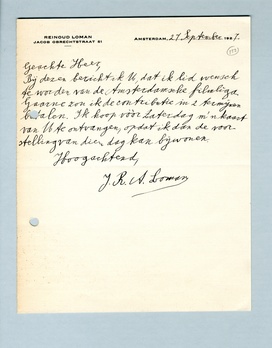 REINOUD LOMAN
JACOB OBRECHTSTRAAT 61
AMSTERDAM, 27 September 1927.
Geachte Heer,
Bij dezen bericht ik U, dat ik lid wensch
te worden van de Amsterdamsche filmliga.
Gaarne zou ik de contributie in 2 termijnen
betalen. Ik hoop vóór Zaterdag m'n kaart
van U te ontvangen, opdat ik dan de voor-
stelling van dien dag kan bijwonen.
Hoogachtend,
J. R. A. Loman